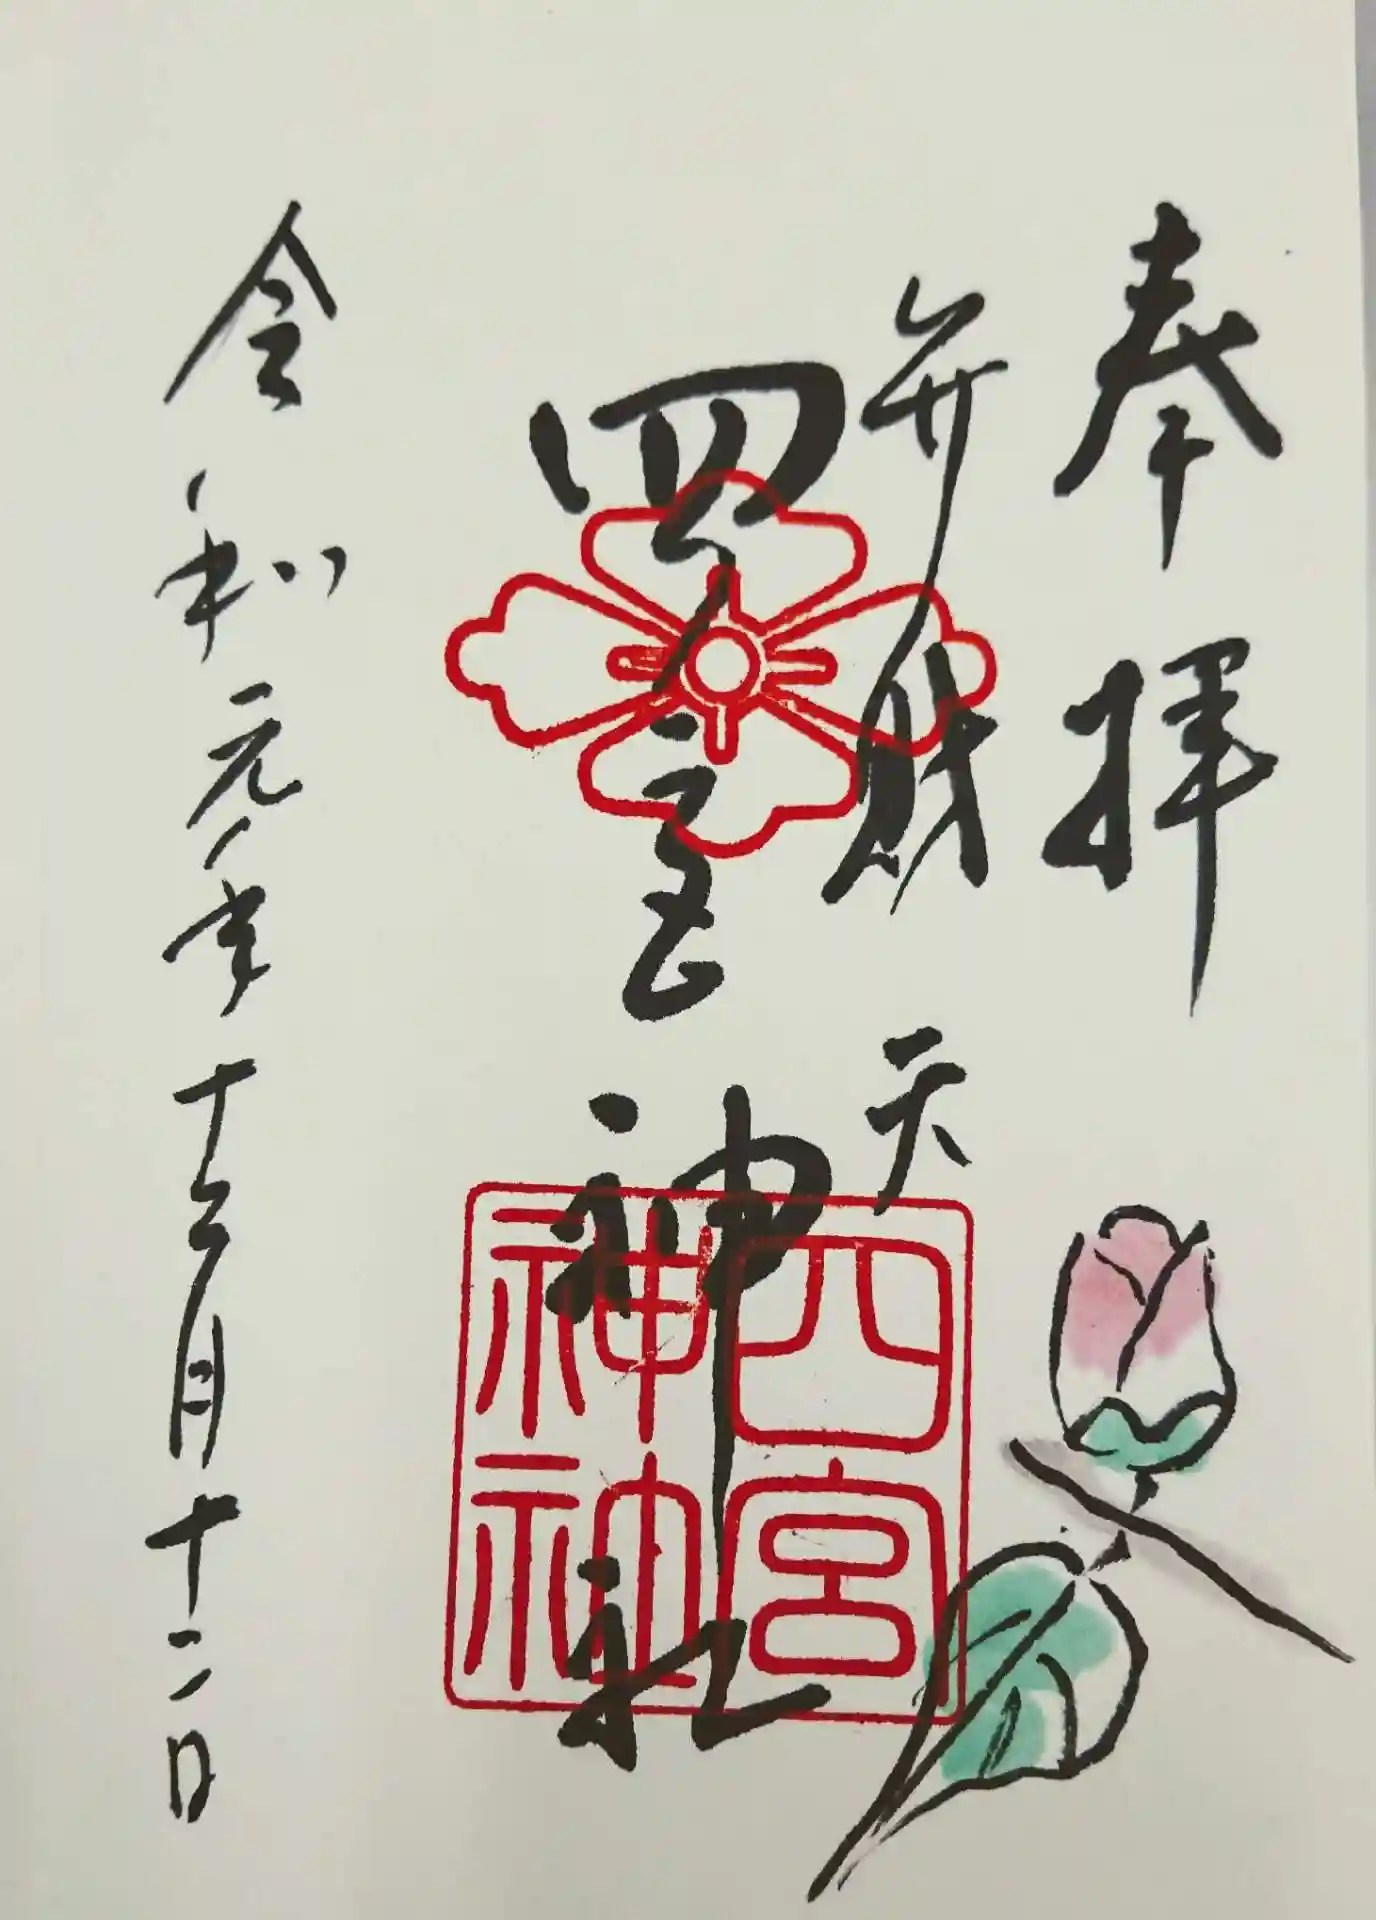 奉拝
弁財天
四之宮神社
四宮神社
令和元年十二月十二日